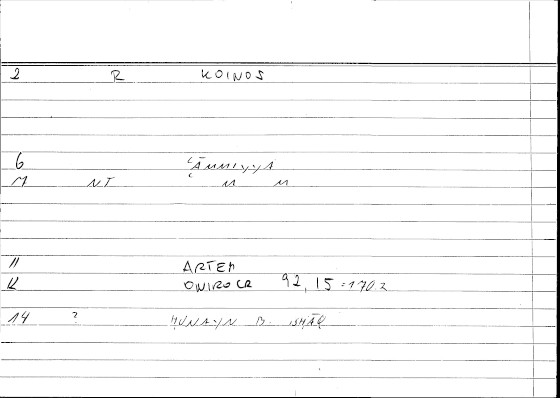 2 R KOINOS
6 ʿĀMMIYYA
M NT ʿ M M
11 ARTEM
12 ONIROCR 92, 15 = 170 2
14 ? ḤUNAYN B. ISḤĀQ